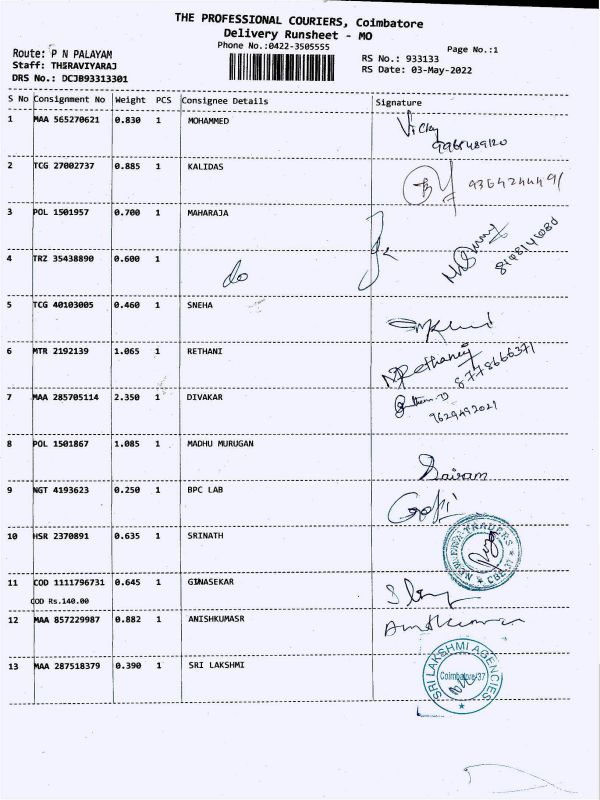 THE PROFESSIONAL COURIERS, Coimbatore
Delivery Runsheet - MO
Phone No.:0422-3505555
Page No.:1
Route: P N PALAYAM
RS No.: 933133
Staff: THIRAVIYARAJ
RS Date: 03-May-2022
DRS No.: DCJB93313301
S No Consignment No Weight PCS Consignee Details Signature
1 MAA 565270621 0.830 1 MOHAMMED Vicky
2 TCG 27002737 0.885 1 KALIDAS
3 POL 1501957 0.700 1 MAHARAJA
4 TRZ 35438890 0.600 1 do
5 TCG 40103005 0.460 1 SNEHA
6 MTR 2192139 1.065 1 RETHANI
8778666371
7 MAA 285705114 2.350 1 DIVAKAR
9629492021
8 POL 1501867 1.085 1 MADHU MURUGAN Sairam
9 NGT 4193623 0.250 1 BPC LAB Gopi
10 HSR 2370891 0.635 1 SRINATH
NEW ERA TRADERS ★ CBE-37 ★
11 COD 1111796731 0.645 1 GUNASEKAR
COD Rs.140.00
12 MAA 857229987 0.882 1 ANISHKUMASR
13 MAA 287518379 0.390 1 SRI LAKSHMI
SRI LAKSHMI AGENCIES
Coimbatore/37